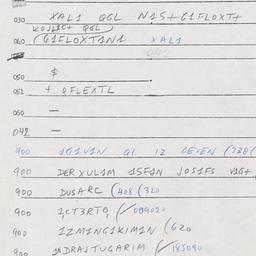 030 XAL1 QGL N1S+G1FLOXT+
KOJLJC+ QGL
060 (G1FLOXTAN1 XAL1
050 $
051 + QFLEXTL
060 —
042 —
900 1G1V1N Q1 12 GEVEN (788(
900 DER XUL1M ASFAN JOS1FS V1G+
900 DUSARC (408 (320
900 1,CT3RTO, (/009020
900 1ZM1NG1KIM1N (620
900 DRAJTUGARIM (/185090